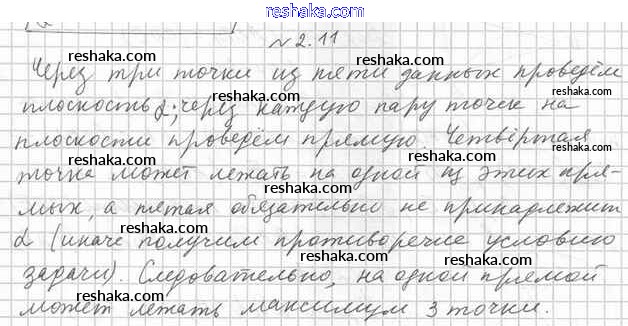 reshaka.com
№ 2.11
reshaka.com reshaka.com
reshaka.com
Через три точки из пяти данных проведём
reshaka.com
плоскость α; через каждую пару точек на
reshaka.com reshaka.com
плоскости проведём прямую. Четвёртая
reshaka.com reshaka.com
точка может лежать на одной из этих пря-
reshaka.com
мых, а пятая обязательно не принадлежит
reshaka.com reshaka.com
α (иначе получим противоречие условию
reshaka.com
задачи). Следовательно, на одной прямой
reshaka.com reshaka.com
может лежать максимум 3 точки.